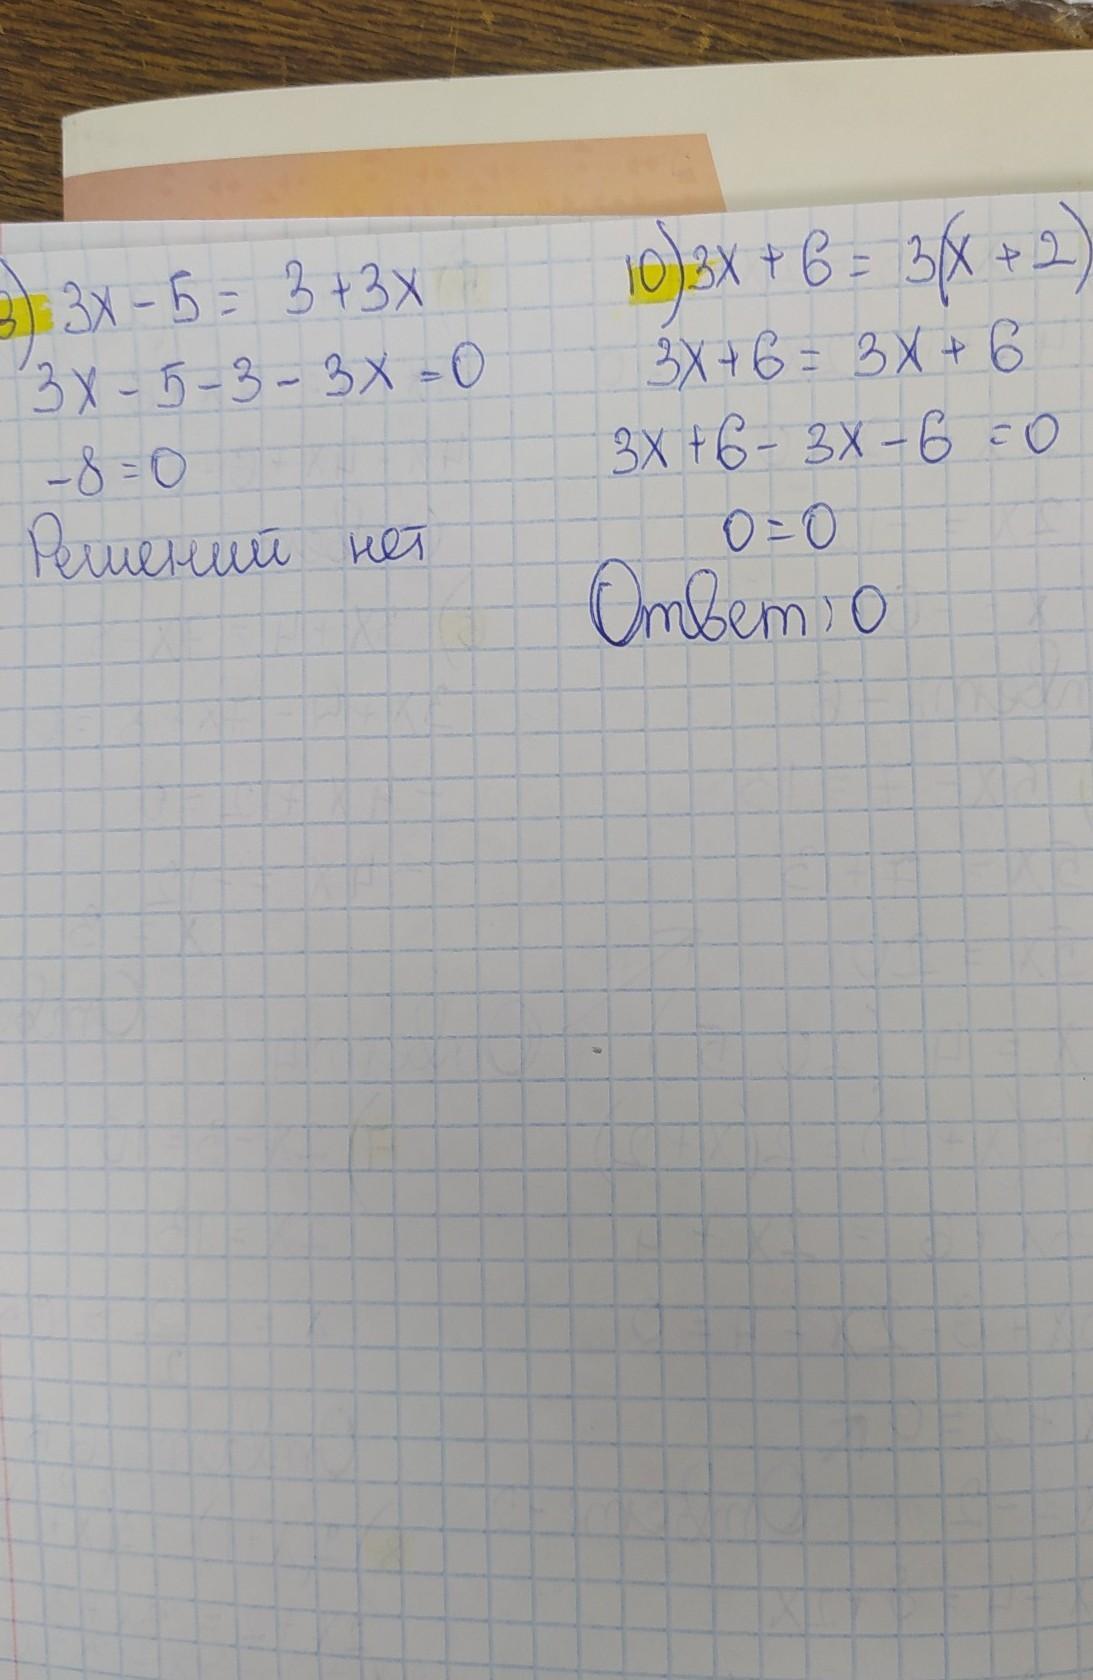 3x - 5 = 3 + 3x
3x - 5 - 3 - 3x = 0
-8 = 0
Решений нет
10) 3x + 6 = 3(x + 2)
3x + 6 = 3x + 6
3x + 6 - 3x - 6 = 0
0 = 0
Ответ: 0